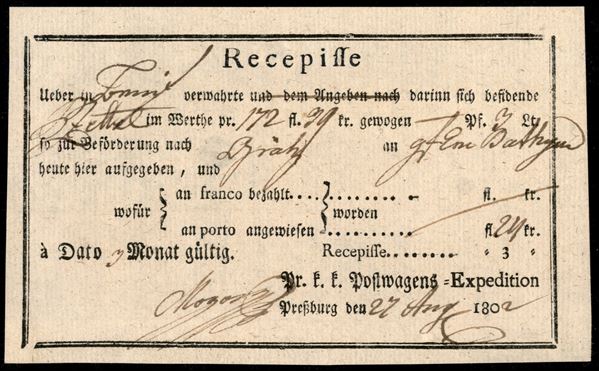 Recepisse
Ueber in verwahrte und dem Angeben nach darinn sich befidende
Zettel im Werthe pr. 172 fl. 39 kr. gewogen — Pf. 3 Lt
so zur Beförderung nach Grätz an
heute hier aufgegeben, und
an franco bezahlt.... fl. kr.
wofür worden
an porto angewiesen fl 24 kr.
à Dato 3 Monat gültig. Recepisse.. " 3 "
Pr. k. k. Postwagens-Expedition
Preßburg den 27 Aug 1802